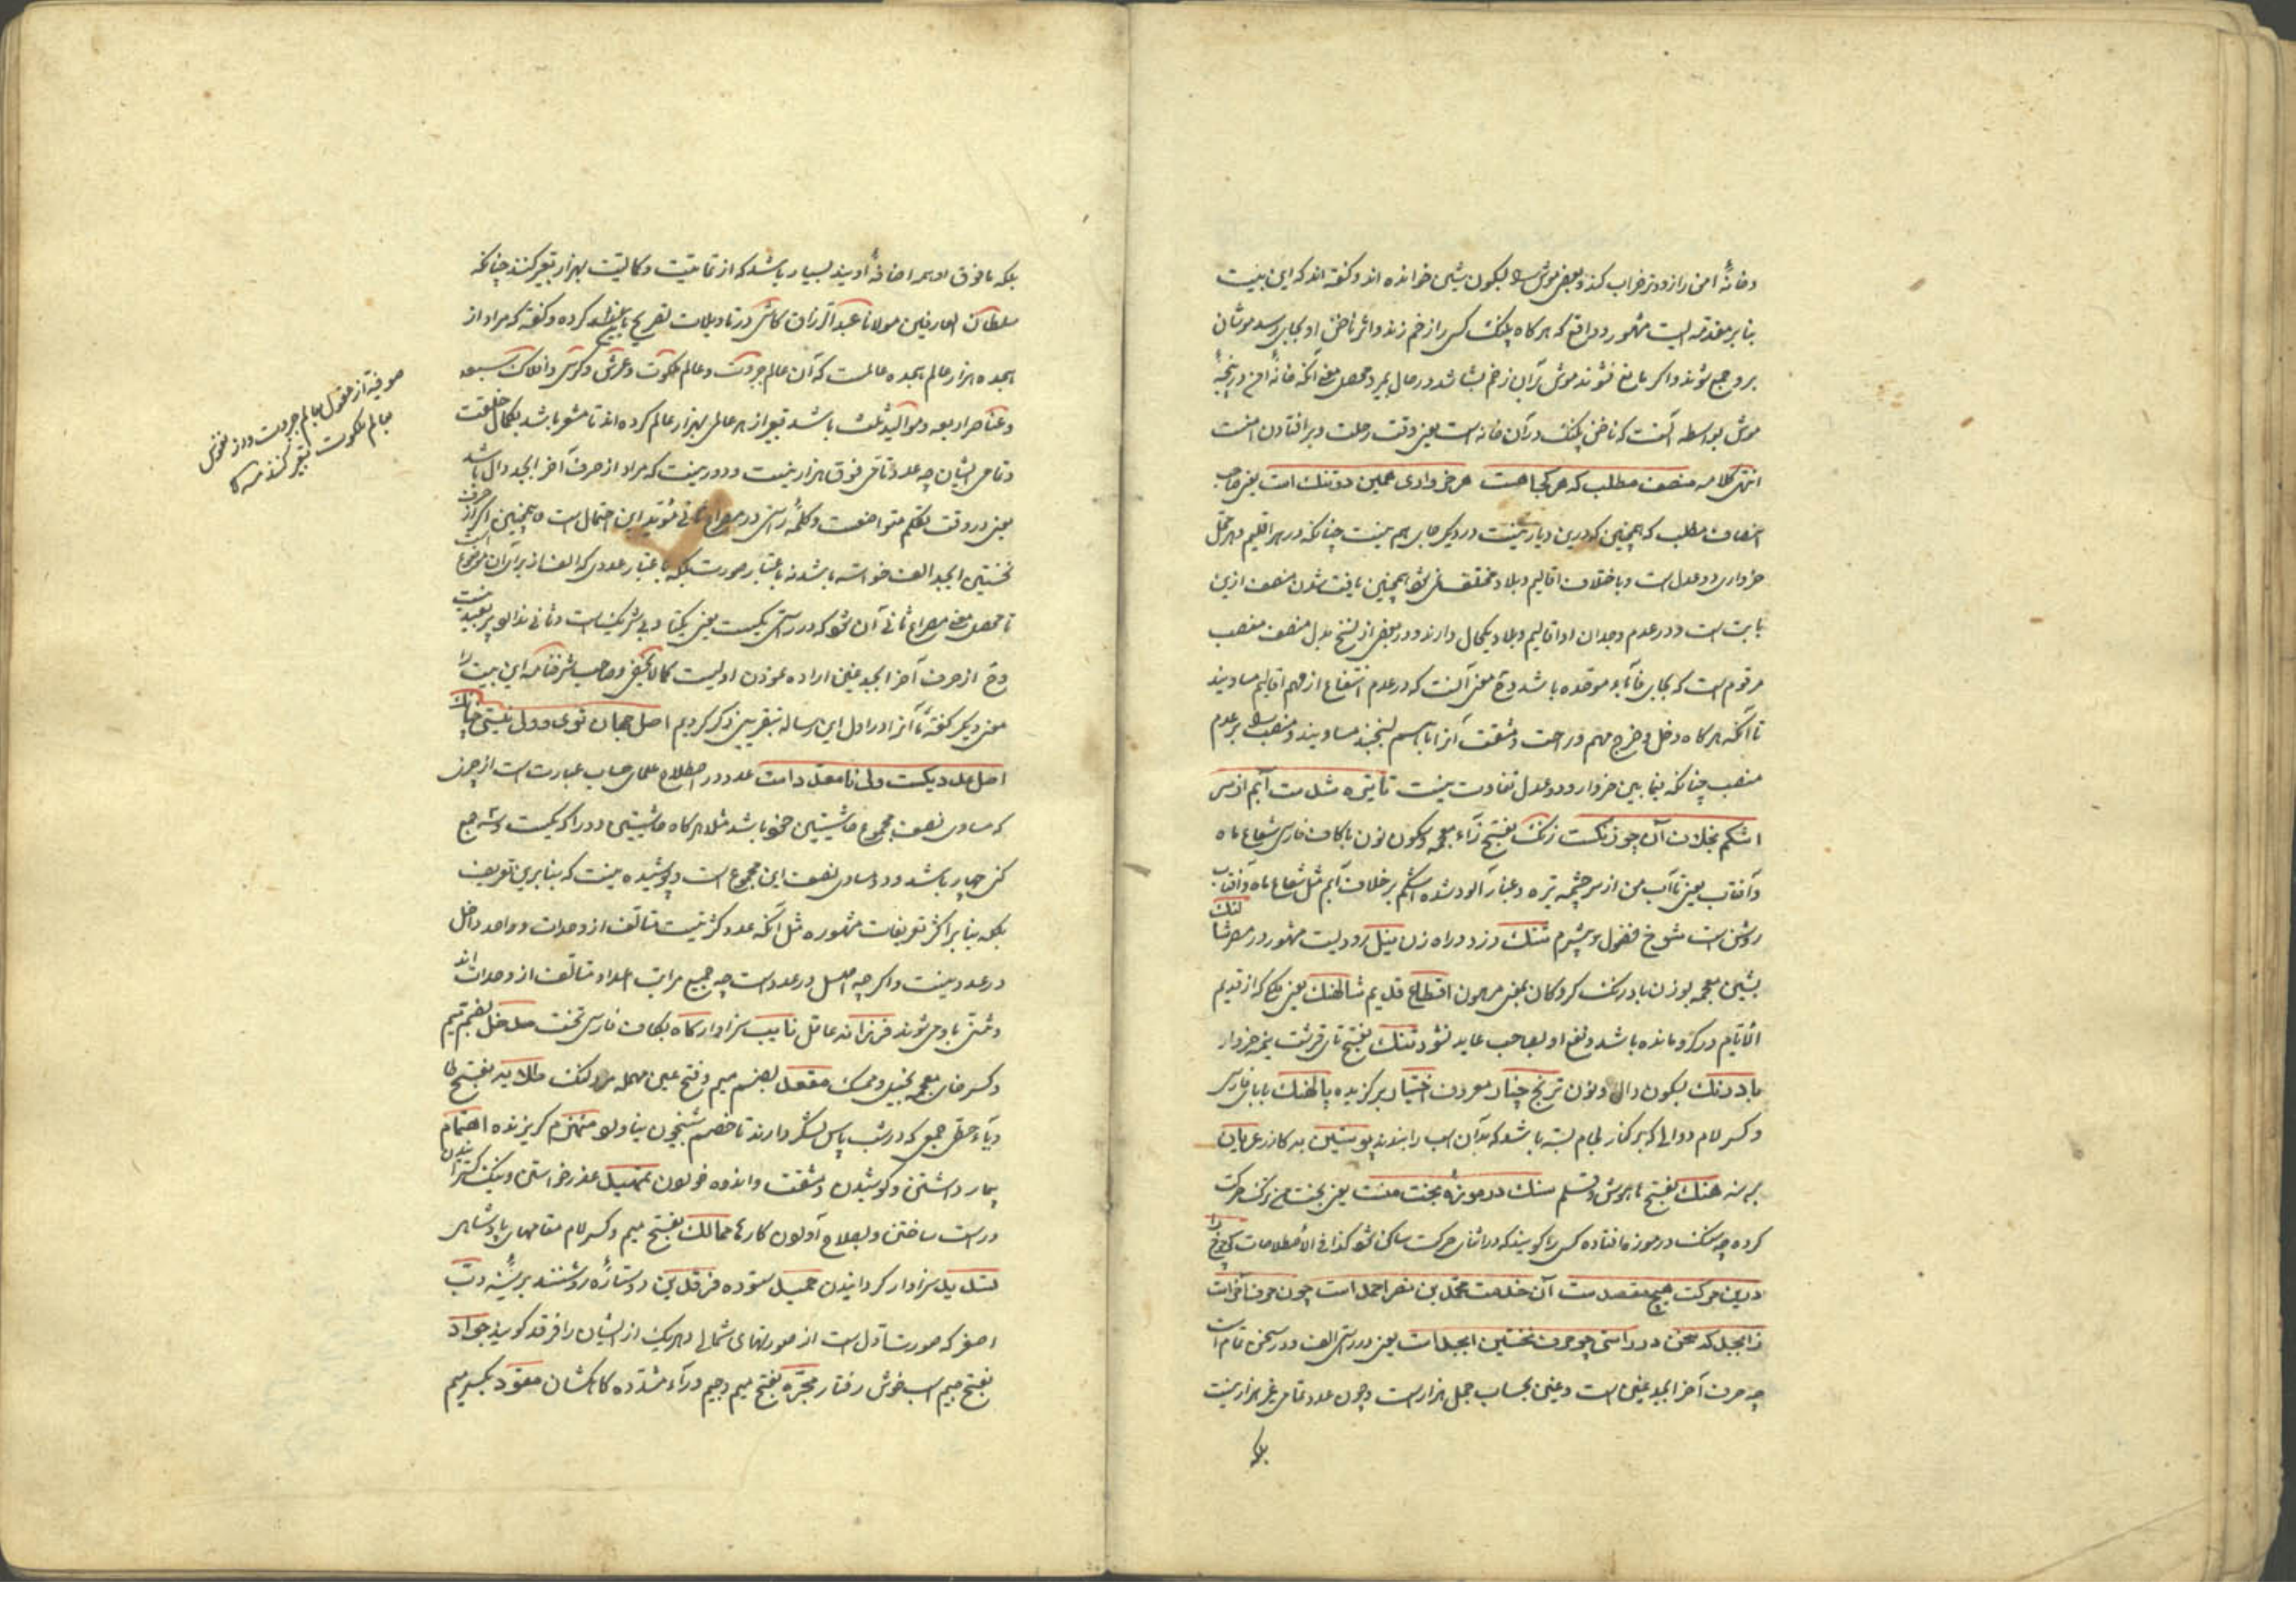 و خانهٔ امن را زودتر خراب کند و بعضی موش را بسکون شین خوانده اند و گفته اند که این بیت
بنا بر مقدمه ایست مشهور در واقع که هرگاه پلنک کسی را زخم زند و اثر ناخن او بجایی رسد موشان
برو جمع شوند و اگر مانع نشوند موش بر آن زخم بشاشد در حال بمیرد و محصل معنی آنکه خانهٔ امن در پنجهٔ
موش بواسطه آنست که ناخن پلنک در آن خانه است یعنی وقت رحلت و برافتادن امنست
انتهی کلامه منصف مطلب که هر کجا هست هر خرواری همین دو تنک است یعنی صاحب
انصاف مطلب که همچنین که درین دیار نیست در دیگر جای هم نیست چنانکه در هر اقلیم و هر محل
خرواری دو عدل است و باختلاف اقالیم و بلاد مختلف نمی شود همچنین نایافت شدن منصف ازین
بابت است و در عدم وجدان او اقالیم و بلاد یک حال دارند و در بعضی از نسخ بدل منصف منصب
مرقوم است که بجای فا باء موحده باشد و ح معنی آنست که در عدم انتفاع از مهم اقالیم مساویند
تا آنکه هرگاه دخل و خرج مهم و راحت و مشقت آنرا با هم بسنجند مساویند و منصب را بر عدم
منصب چنانکه میان خروار و دو عدل تفاوت نیست تا تیره شدست آبم از سر
اشکم بخلاف آن چو زنکست زنک بفتح زاء معجمه و سکون نون با کاف فارسی شعاع ماه
و آفتاب یعنی تا آب من از سر چشمه تیره و غبار آلود شده اشکم بر خلاف آبم مثل شعاع ماه و آفتاب
روشن است شوخ فضول و بیشرم شنک دزد و راه زن نیل رودیست مشهور در مصر شالنک
بشین معجمه بوزن بادرنک گروگان یعنی مرهون اقطاع قدیم شالهنک یعنی ملکی که از قدیم
الایام در گرو مانده باشد و نفع او بصاحب عاید نشود تنک بفتح تای قرشت نیمه خروار
بادرنک بسکون دال و نون ترنج چنار معروف اختیار برگزیده پالهنک با بای فارسی
و کسر لام دوالی که بر کنار لجام بسته باشد که بدان اسب را ببندند پوستین بد گازر عریان
برهنه هنک بفتح ها هوش و قسم سنک در موزهٔ بخت منست یعنی بخت من ترک حرکت
کرده چه سنک در موزه افتاده کسی را گویند که در اثنای حرکت ساکن شود کذا فی الاصطلاحات کی چرخ را
درین حرکت هیچ مقصد ست آن خدمت محمد بن نصر احمد است چون حرف آخر است
ز ابجد که سخن در راستی چو حرف نخستین ابجد است یعنی در راستی الف و در سخن تمام است
چه حرف آخر ابجد غین است و غین بحساب جمل هزار است و چون عدد تمامی غیر هزار نیست
بلکه
بلکه مافوق او همه اضافهٔ اویند بسیار باشد که از تمامیت و کمالیت بهزار تعبیر کنند چنانکه
سلطان العارفین مولانا عبد الرزاق کاشی در تاویلات تصریح باین معنی کرده و گفته که مراد از
هجده هزار عالم هجده عالمست که آن عالم جبروت و عالم ملکوت و عرش و کرسی و افلاک سبعه
و عناصر اربعه و موالید ثلث باشد تعبیر از هر عالمی بهزار عالم کرده اند تا مشعر باشد بکمال خلقت
و تمامی ایشان چه عدد تامی فوق هزار نیست و دور نیست که مراد از حرف آخر ابجد دال باشد
یعنی در وقت تکلم متواضعست و کلمهٔ راستی در مصراع ثانی مؤید این احتمال است و همچنین اگر از حرف
نخستین ابجد الف خواسته باشد نه باعتبار صورت بلکه باعتبار عددی که الف از برای آن موضوع است
تا محصل معنی مصراع ثانی آن شود که در راستی یکیست یعنی یکتا و بی شریکست و ثانی ندارد پر بعید نیست
و ح از حرف آخر ابجد غین اراده نمودن اولیست کما لا یخفی و صاحب شرفنامه این بیت را
معنی دیگر گفته و ما آنرا در اول این رساله بتقریبی ذکر کردیم اصل جهان توی و ول نیستی چنانک
اصل عدد یکست ولی نامعدد است عدد در اصطلاح علمای حساب عبارت است از چیزی
که مساوی نصف مجموع حاشیتین خود باشد مثلا هرگاه حاشیتین دو را که یکست و سه جمع
کنی چهار باشد و دو مساوی نصف این مجموع است و پوشیده نیست که بنا برین تعریف
بلکه بنا بر اکثر تعریفات مشهوره مثل آنکه عدد کثرتیست متألف از وحدات و واحد داخل
در عدد نیست و اگر چه اصل در عدد است چه جمیع مراتب اعداد متألف از وحدات اند
و منتهی باو می شوند فرزانه عاقل نایب سزاوار گاه بکاف فارسی تخت مدخل بضم میم
و کسر خای معجمه بخیل و ممسک مقعد بضم میم و فتح عین مهمله مرد لنک طلایه بفتح طا
و یاء حطی جمعی که در شب پاس لشکر دارند تا خصم شبخون نیاورد منهزم گریزنده اهتمام
تیمار داشتن و کوشیدن و مشقت و اندوه خوردن تمهید عذر خواستن و نیک گسترانیدن
درست ساختن و بصلاح آوردن کارها ممالک بفتح میم و کسر لام مقامهای پادشاهی
تسدید سزاوار گردانیدن حمید ستوده فرقدین دو ستارهٔ روشنند بر سینه دب
اصغر که صورت اول است از صورتهای شمالی و هریک از ایشان را فرقد گویند جواد
بفتح جیم اسب خوش رفتار مجره بفتح میم و جیم و راء مشدده کاهکشان مقود بکسر میم
صوفیه از عقول بعالم جبروت و از نفوس
بعالم ملکوت تعبیر کنند